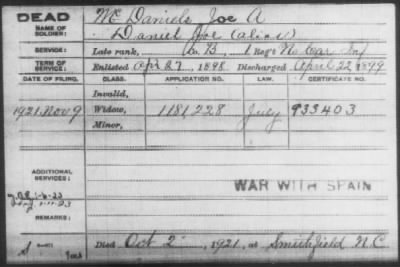 DEAD
NAME OF SOLDIER:
Mc Daniels Joe A
Daniel Joe (alias)
SERVICE:
Late rank, Co. B, 1 Reg't No Car Inf
TERM OF SERVICE:
Enlisted Apr 27, 1898. Discharged April 22 1899
DATE OF FILING. CLASS. APPLICATION NO. LAW. CERTIFICATE NO.
Invalid,
1921 Nov 9 Widow, 1181228 July 933403
Minor,
ADDITIONAL SERVICES:
WAR WITH SPAIN
1-6-23
1-11-23
REMARKS:
Died Oct 2, 1921, at Smithfield N.C.